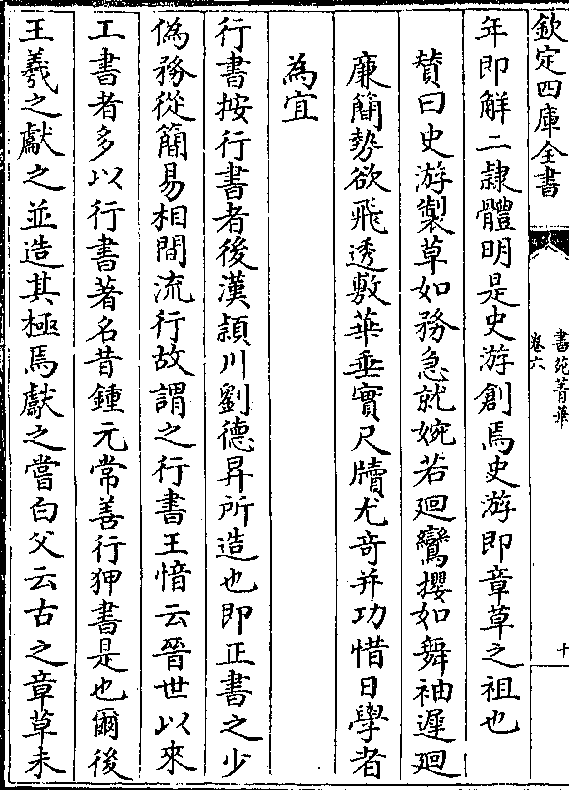 欽定四庫全書
書苑菁華
卷六
十
年即解二隸體明是史游創焉史游即章草之祖也
贊曰史游製草如務急就婉若迴鸞攖如舞袖遲迴
廉簡勢欲飛透敷華垂實尺牘尤奇并功惜日學者
為宜
行書按行書者後漢潁川劉德昇所造也即正書之少
偽務從簡易相間流行故謂之行書王愔云晉世以來
工書者多以行書著名昔鍾元常善行狎書是也爾後
王羲之獻之並造其極焉獻之嘗白父云古之章草未